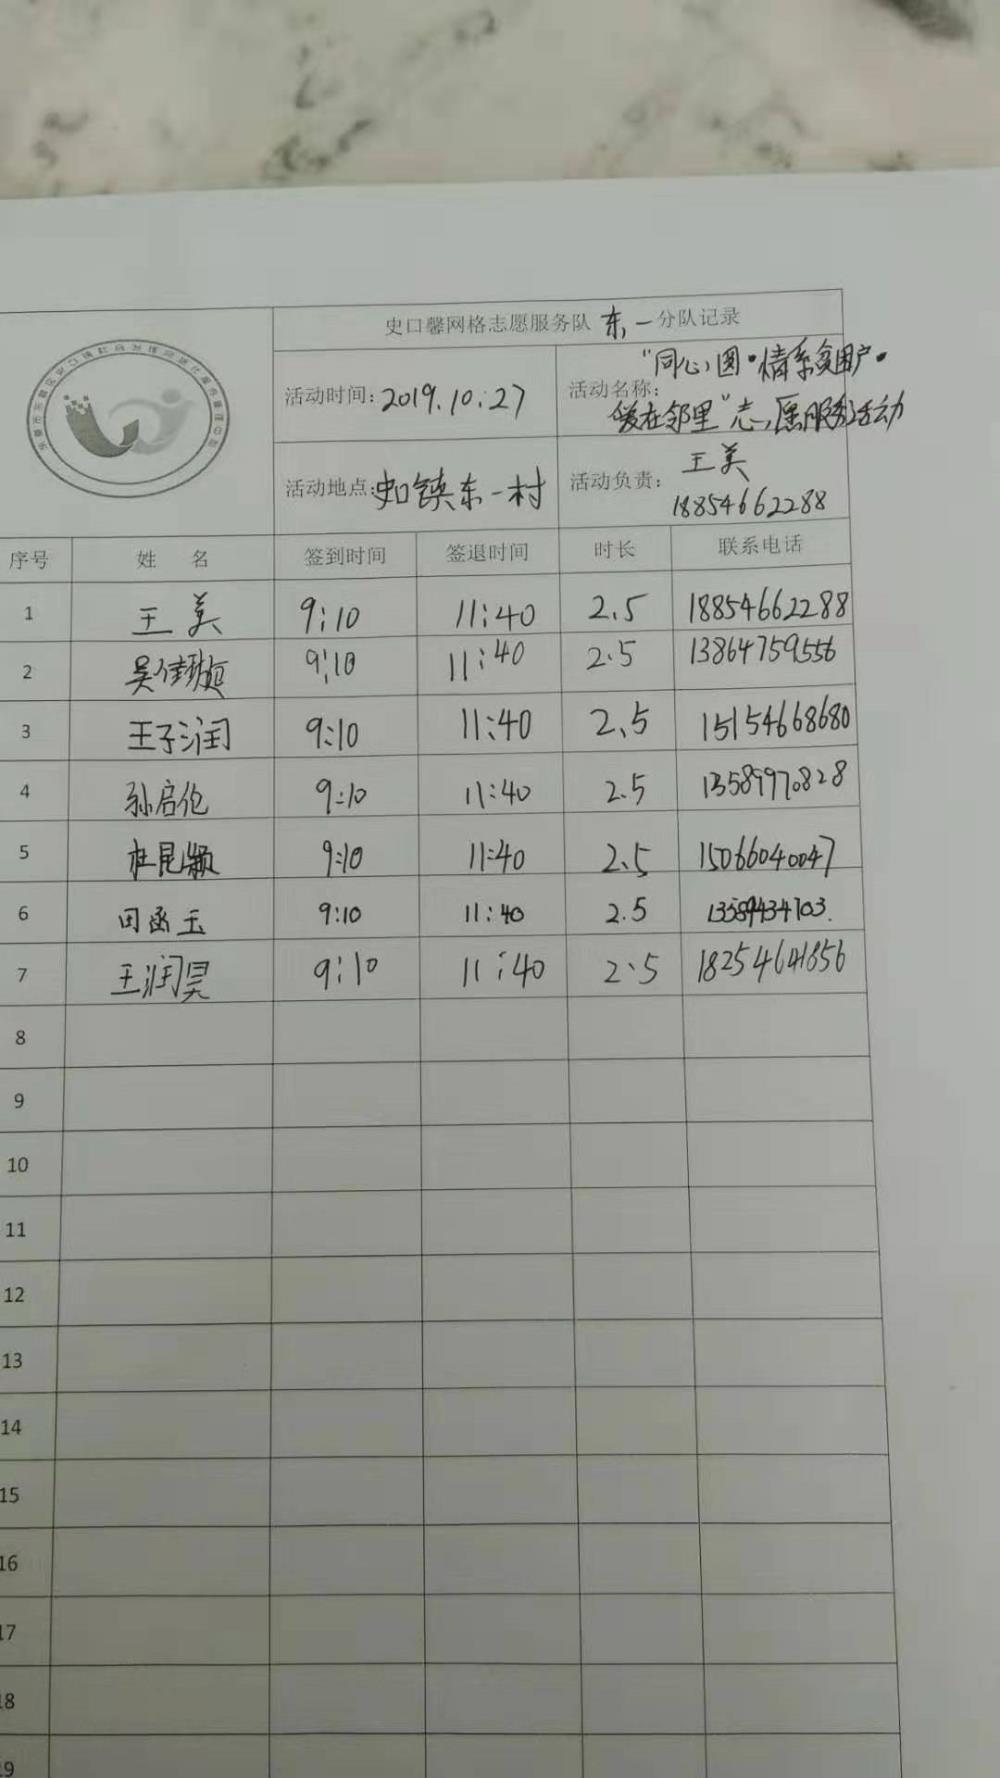 史口馨网格志愿服务队 东一 分队记录
活动时间: 2019.10.27
活动名称: "同心圆·情系贫困户·
爱在邻里"志愿服务活动
活动地点: 史口镇东一村
活动负责: 王美
18854662288
序号 姓 名 签到时间 签退时间 时长 联系电话
1 王美 9:10 11:40 2.5 18854662288
2 9:10 11:40 2.5 13864759556
3 王子润 9:10 11:40 2.5 15154668680
4 孙启伦 9:10 11:40 2.5 13589970828
5 杜昆颖 9:10 11:40 2.5 15066040047
6 田函玉 9:10 11:40 2.5 13589434703.
7 王润昊 9:10 11:40 2.5 18254641856
8
9
10
11
12
13
14
15
16
17
18
19